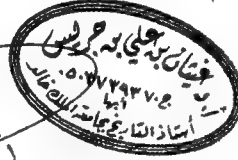 د. غيثان بن علي بن جريس
ج ٠٥٠٣٧٣٩٣٧٠
أبها
أستاذ التاريخ بجامعة الملك خالد